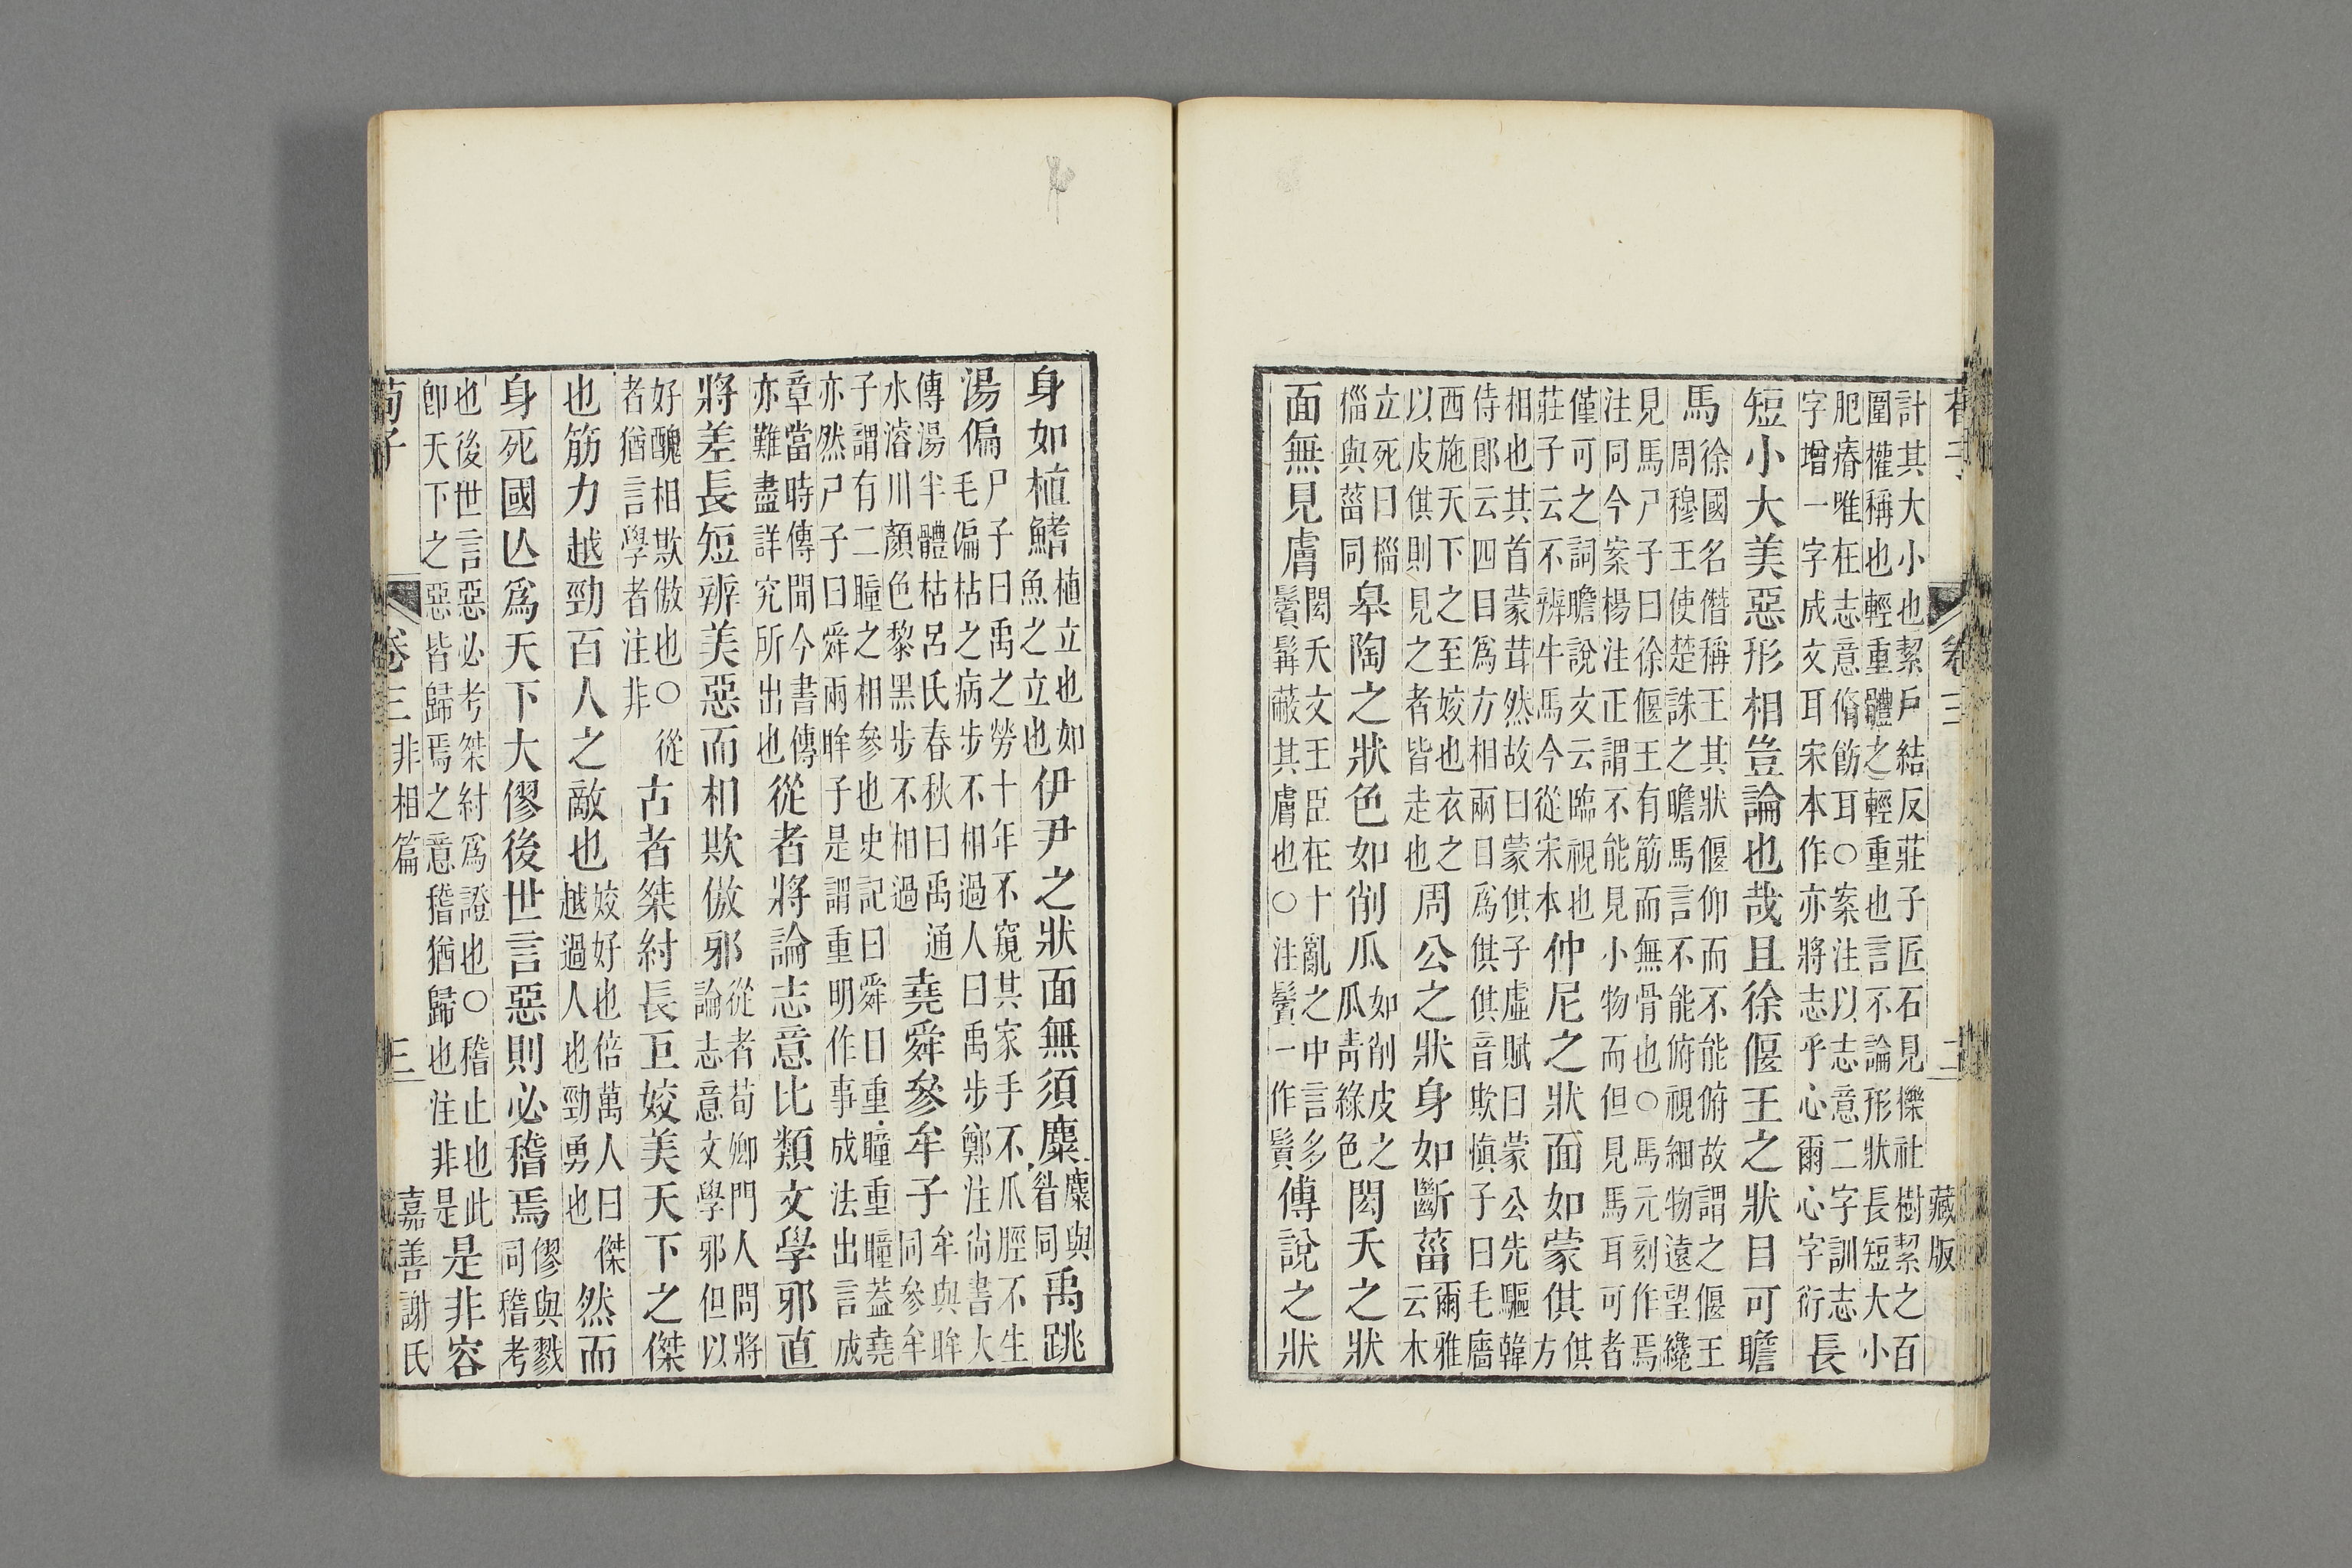 荀子 卷三 二 藏版
計其大小也絜戶結反莊子匠石見櫟社樹絜之百
圍權稱也輕重體之輕重也言不論形狀長短大小
肥瘠唯在志意脩飭耳○案注以志意二字訓志
字增一字成文耳宋本作亦將志乎心爾心字衍
長
短小大美惡形相豈論也哉且徐偃王之狀目可瞻
馬
徐國名僭稱王其狀偃仰而不能俯故謂之偃王
周穆王使楚誅之瞻馬言不能俯視細物遠望纔
見馬尸子曰徐偃王有筋而無骨也○馬元刻作焉
注同今案楊注正謂不能見小物而但見馬耳可者
僅可之詞瞻說文云臨視也
莊子云不辨牛馬今從宋本
仲尼之狀面如蒙倛
倛
方
相也其首蒙茸然故曰蒙倛子虛賦曰蒙公先驅韓
侍郎云四目爲方相兩目爲倛倛音欺慎子曰毛廧
西施天下之至姣也衣之
以皮倛則見之者皆走也
周公之狀身如斷菑
爾雅
云木
立死曰椔
椔與菑同
皋陶之狀色如削瓜
如削皮之
瓜青綠色
閎夭之狀
面無見膚
閎夭文王臣在十亂之中言多
鬢髯蔽其膚也○注鬢一作鬚
傅說之狀
身如植鰭
植立也如
魚之立也
伊尹之狀面無須麋
麋與
眉同
禹跳
湯偏
尸子曰禹之勞十年不窺其家手不爪脛不生
毛偏枯之病步不相過人曰禹步鄭注尚書大
傳湯半體枯呂氏春秋曰禹通
水濬川顏色黎黑步不相過
堯舜參牟子
牟與眸
同參牟
子謂有二瞳之相參也史記曰舜目重瞳重瞳蓋堯
亦然尸子曰舜兩眸子是謂重明作事成法出言成
章當時傳聞今書傳
亦難盡詳究所出也
從者將論志意比類文學邪直
將差長短辨美惡而相欺傲邪
從者荀卿門人問將
論志意文學邪但以
好醜相欺傲也○從
者猶言學者注非
古者桀紂長巨姣美天下之傑
也筋力越勁百人之敵也
姣好也倍萬人曰傑
越過人也勁勇也
然而
身死國亾爲天下大僇後世言惡則必稽焉
僇與戮
同稽考
也後世言惡必考桀紂爲證也○稽止也此
卽天下之惡皆歸焉之意稽猶歸也注非是
是非容
荀子 卷三 非相篇 三 嘉善謝氏